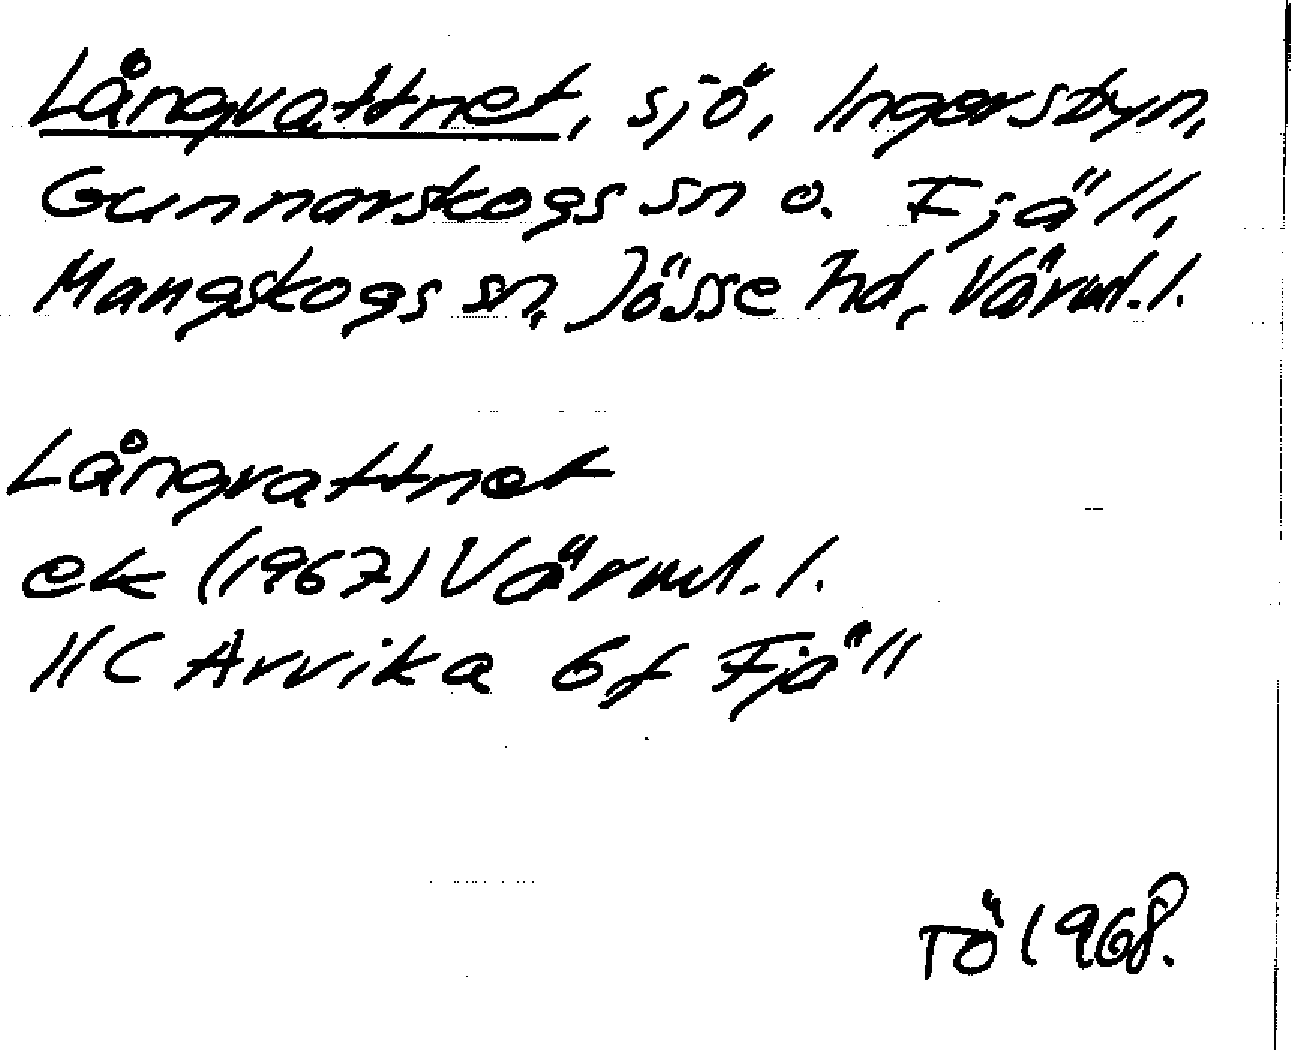 Långvattnet, sjö, Ingersbyn,
Gunnarskogs sn o. Fjäll,
Mangskogs sn, Jösse hd, Värml. l.
Långvattnet
ek (1967) Värml. l.
11C Arvika 6f Fjäll
TÖ 1968.